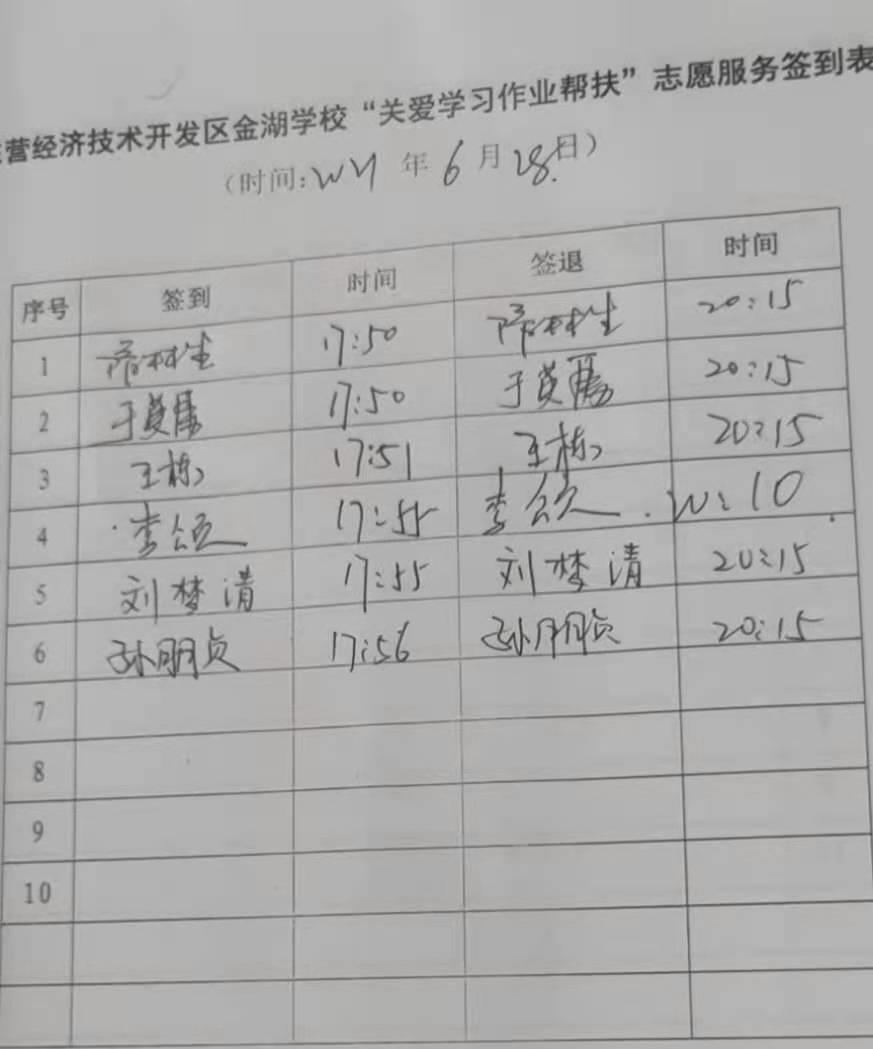 营经济技术开发区金湖学校“关爱学习作业帮扶”志愿服务签到表
(时间: 年6月28日)
序号 签到 时间 签退 时间
1 17:50 20:15
2 17:50 20:15
3 王栋 17:51 王栋 20:15
4 李颂 17:55 李颂 20:10
5 刘梦清 17:55 刘梦清 20:15
6 孙朋贞 17:56 孙朋贞 20:15
7
8
9
10